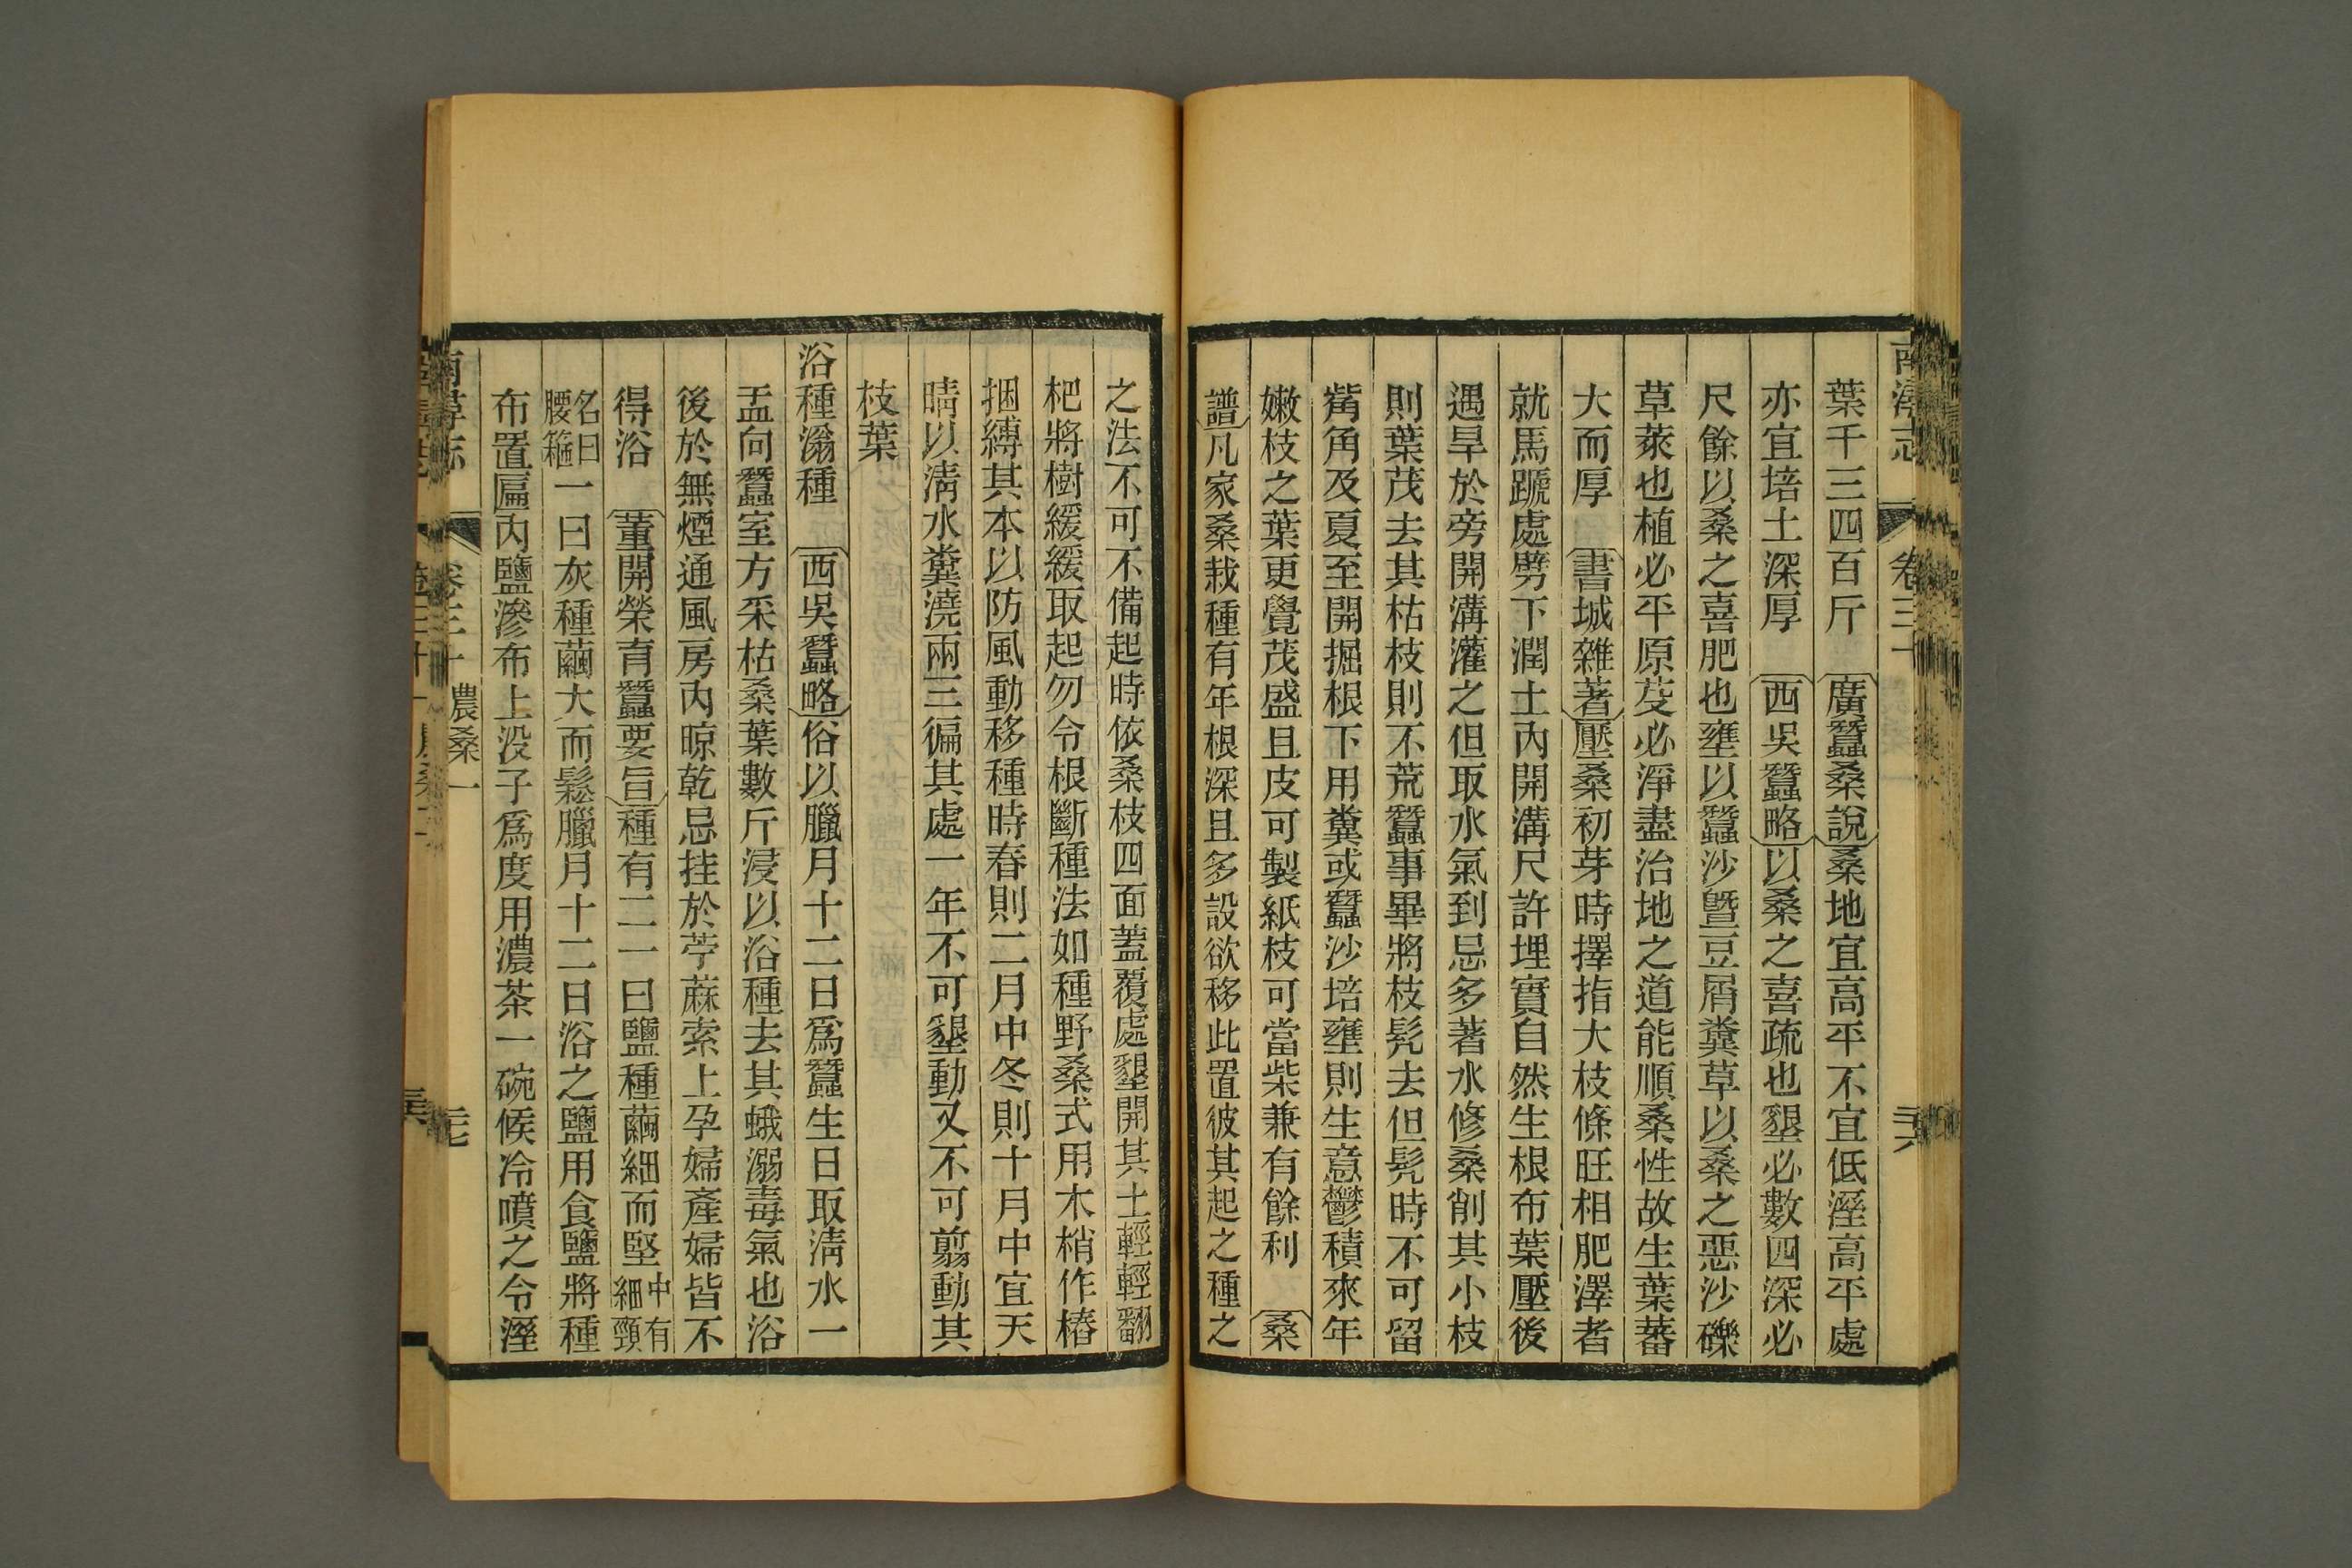 葉千三四百斤　廣蠶桑說桑地宜高平不宜低溼高平處
亦宜培土深厚　西吳蠶略以桑之喜疏也墾必數四深必
尺餘以桑之喜肥也壅以蠶沙曁豆屑糞草以桑之惡沙礫
草萊也植必平原芟必淨盡治地之道能順桑性故生葉蕃
大而厚　書城雜著壓桑初芽時擇指大枝條旺相肥澤者
就馬蹏處劈下潤土內開溝尺許埋實自然生根布葉壓後
遇旱於旁開溝灌之但取水氣到忌多著水修桑削其小枝
則葉茂去其枯枝則不荒蠶事畢將枝髡去但髡時不可留
觜角及夏至開掘根下用糞或蠶沙培壅則生意鬱積來年
嫩枝之葉更覺茂盛且皮可製紙枝可當柴兼有餘利　桑
譜凡家桑栽種有年根深且多設欲移此置彼其起之種之
之法不可不備起時依桑枝四面蓋覆處墾開其土輕輕翻
杷將樹緩緩取起勿令根斷種法如種野桑式用木梢作樁
捆縛其本以防風動移種時春則二月中冬則十月中宜天
晴以淸水糞澆兩三徧其處一年不可墾動又不可翦動其
枝葉
浴種滃種　西吳蠶略俗以臘月十二日爲蠶生日取淸水一
盂向蠶室方采枯桑葉數斤浸以浴種去其蛾溺毒氣也浴
後於無煙通風房內晾乾忌挂於苧蔴索上孕婦產婦皆不
得浴　董開榮育蠶要旨種有二一曰鹽種繭細而堅中有細頸
名曰腰箍一曰灰種繭大而鬆臘月十二日浴之鹽用食鹽將種
布置匾內鹽滲布上没子爲度用濃茶一碗候冷噴之令溼
南潯志　卷三十　農桑一　三七
南潯志　卷三十　三六